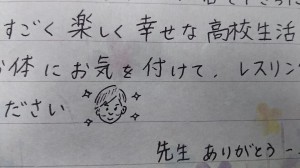 すごく楽しく幸せな高校生活
体にお気を付けて、レスリン
ださい
先生 ありがとう